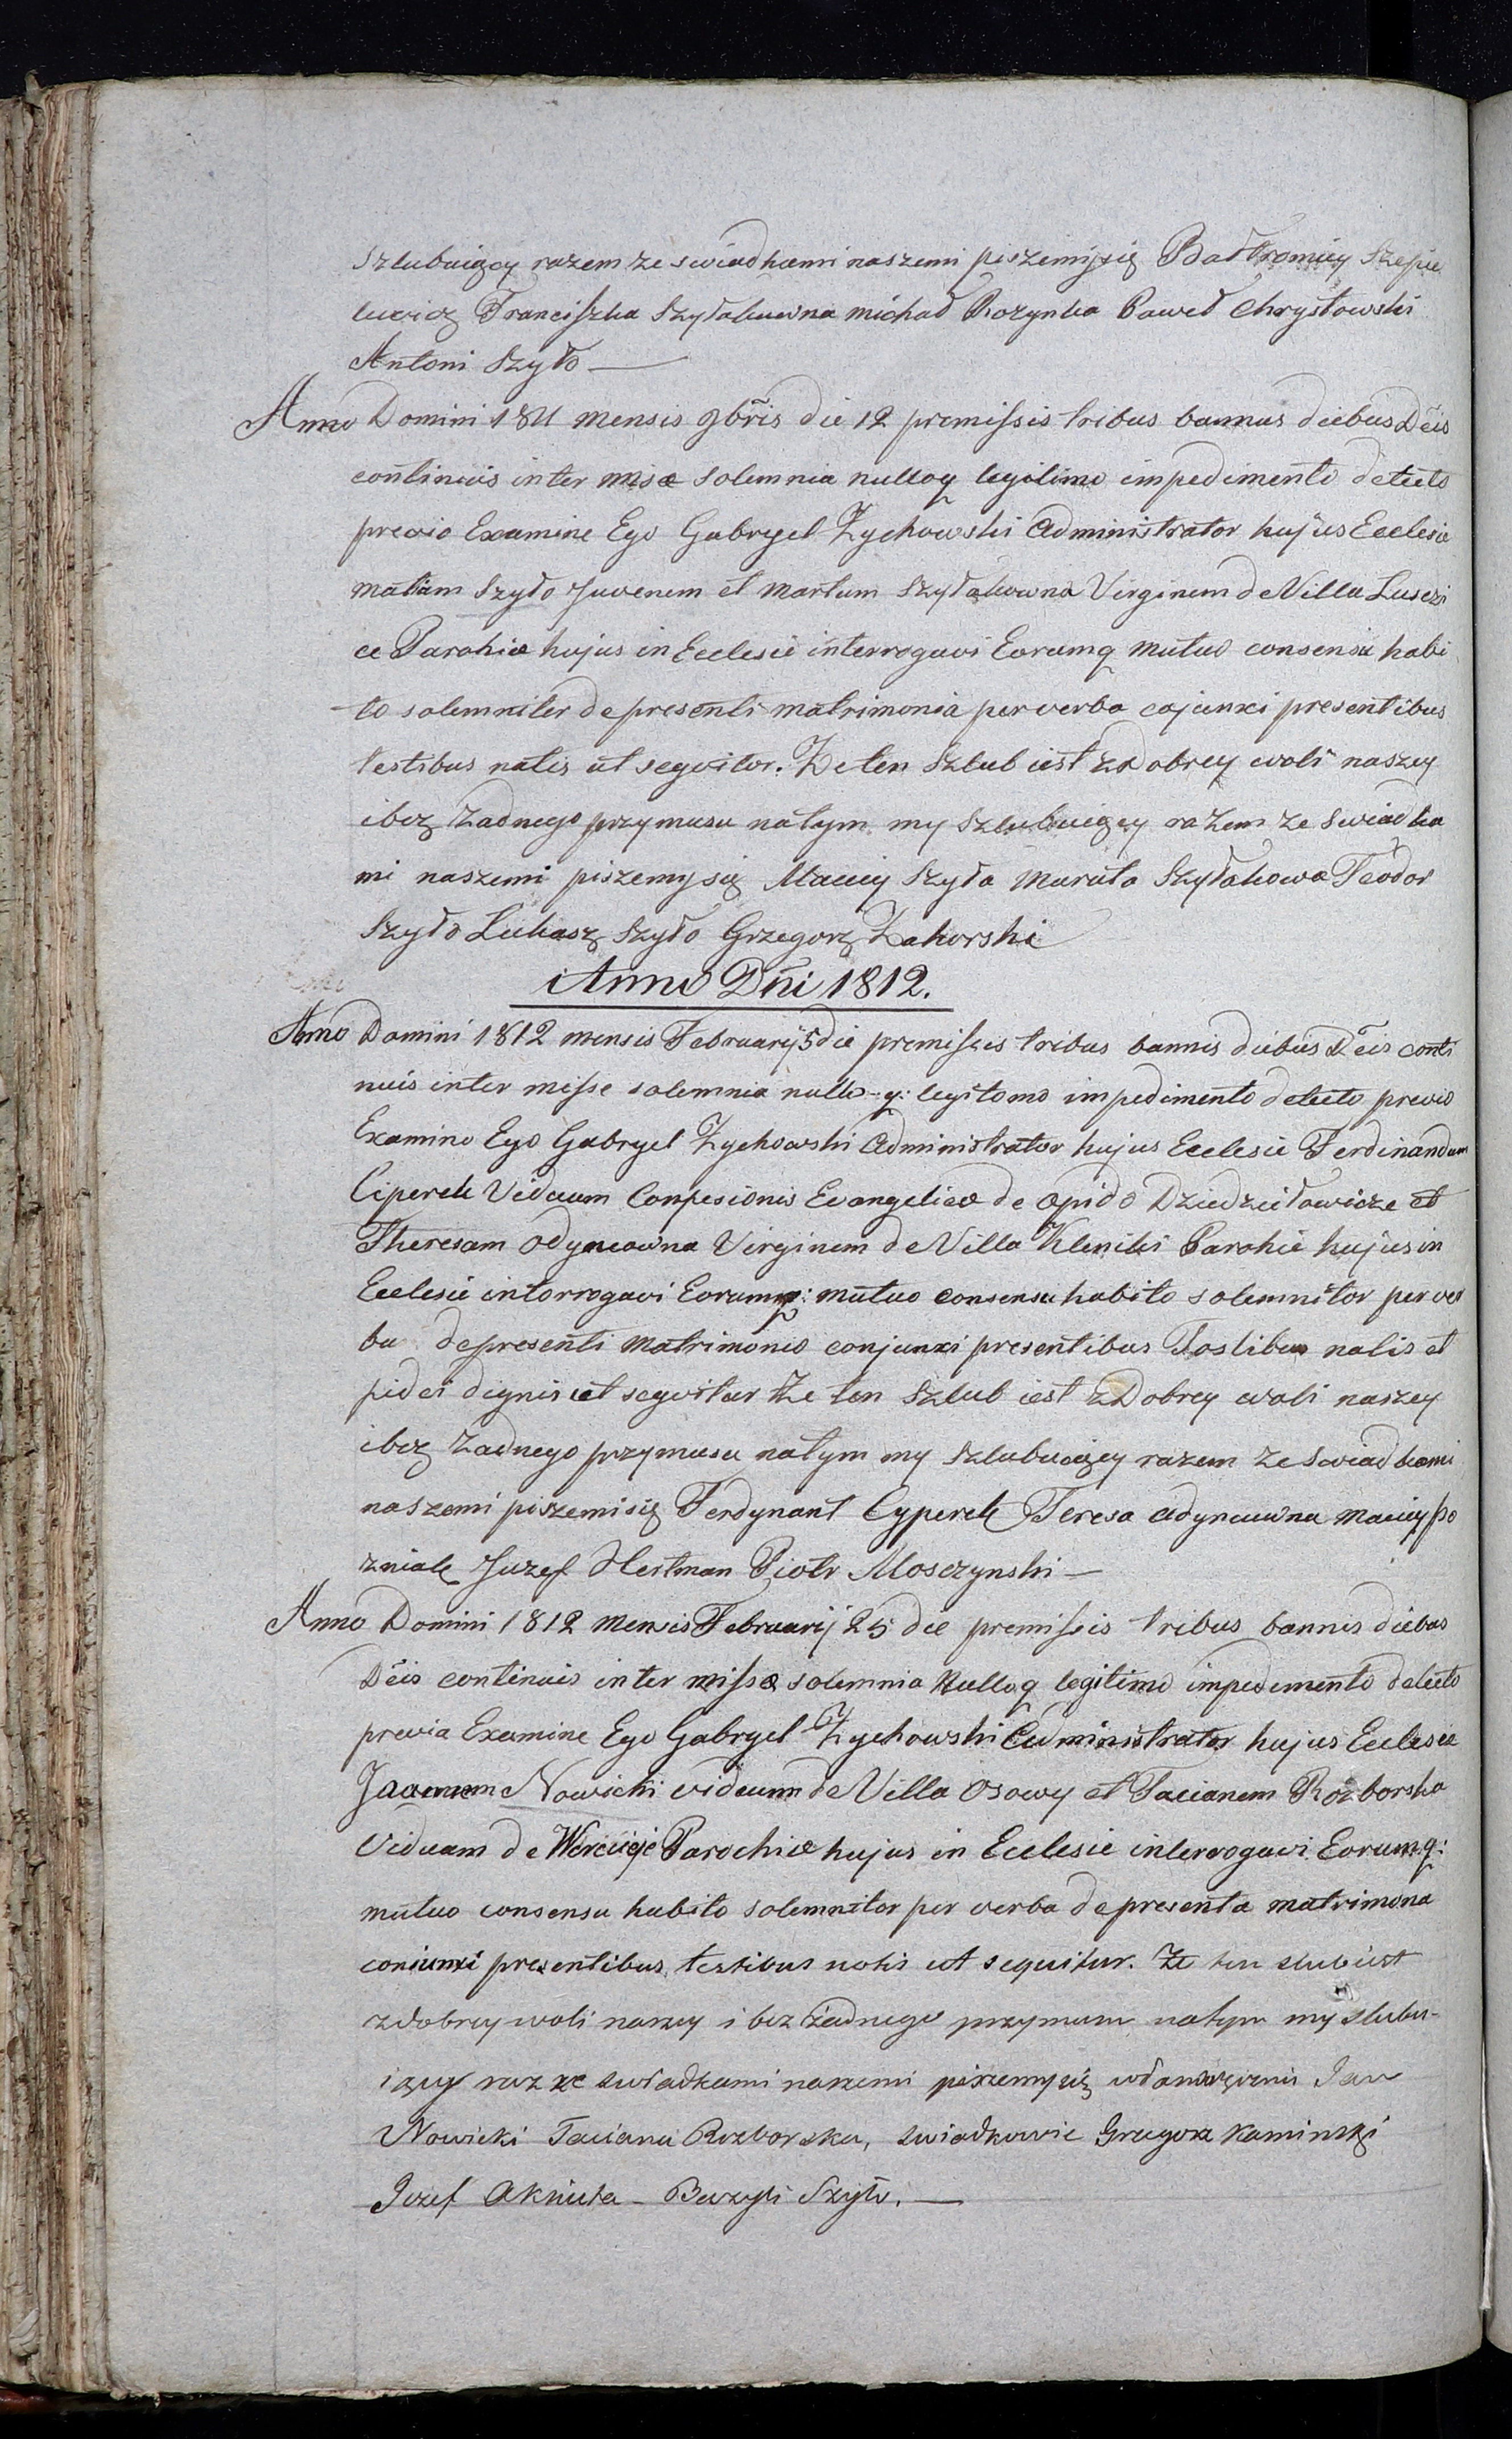 Szlubuiący razem ze swiadkami naszemi piszemisię Bałtromiey Szepie
lewicz Franciszka Szyłakuwna Michał Rozynka Paweł Chrystowski
Antoni Szyło —
Anno Domini 1811 mensis 9bris die 12 premissis tribus bannus diebus Dēis
continuis inter misæ solemnia nulloq legitimo impedimento detecto
previo Examine Ego Gabryel Zychowski Administrator hujus Ecclesie
matiam Szyło Juvenem et Martam Szyłakowna Virginem de Villa Lusczi
ce Parohiæ hujus in Eeclesie interrogavi Eorumq mutuo consensu habi
to solemniter de presenti matrimonia per verba cojunxi presentibus
testibus notis ut segvitor. Ze ten Szlub iest z Dobrey woli naszey
ibez zadnego przymusu natym my Szlubuiący razem ze Swiadka
mi naszemi piszemysię Maciey Szyła Maruta Szyłakowa Teodor
Szyło Lukasz Szyło Grzegorz Zakorski
Anno Dñi 1812.
Anno Domini 1812 mensis Februarij 5 die premissis tribus bannis diebus Dēis conti
nuis inter misse solemnia nullo-q: legitomo impedimento detecto previo
Examino Ego Gabryel Zychowski Administrator hujus Ecclesie Ferdinandum
Ciperek Viduum Confesionis Evangelicæ de opido Dziedziłowicze et
Theresam Odyncowna Virginem de Villa Kleniki Parohie hujus in
Ecclesie intorrogavi Eorumq: mutuo consensu habito solemnitor per ver
ba depresenti Matrimonio conjunxi presentibus Tostibus notis et
fidei dignis ut segvitur Ze ten Szlub iest z Dobrey woli naszey
ibez Zadnego przymusu natym my Szlubuiący razem ze swiadkami
naszemi piszemisię Ferdynant Cyperek Teresa Adyncuwna Maciey Po
zniak Juzef Hertman Piotr Mosczynski —
Anno Domini 1812 Mensis Februarij 25 die premissis tribus bannis diebus
Dēis continuis inter missæ solemnia Nulloq legitimo impedemento detecto
previa Examine Ego Gabryel Zychowski Administrator hujus Ecclesiæ
Joannem Nowicki viduum de Villa Osowy et Tacianem Rozborska
Viduam de Parochiæ hujus in Ecclesie interrogavi Eorumq:
mutuo consensu habito solemnitor per verba depresenta matrimona
coniunxi presentibus testibus notis ut sequitur. Ze ten slub iest
zdobrey woli naszey i bez żadnego przymusu natym my slubu-
iący raz ze swiadkami naszemi piszemysię Jan
Nowicki Taciana Rozborska, swiadkowie Gregorz Kaminski
Jozef Aknieta - Bazyli Szyło. —